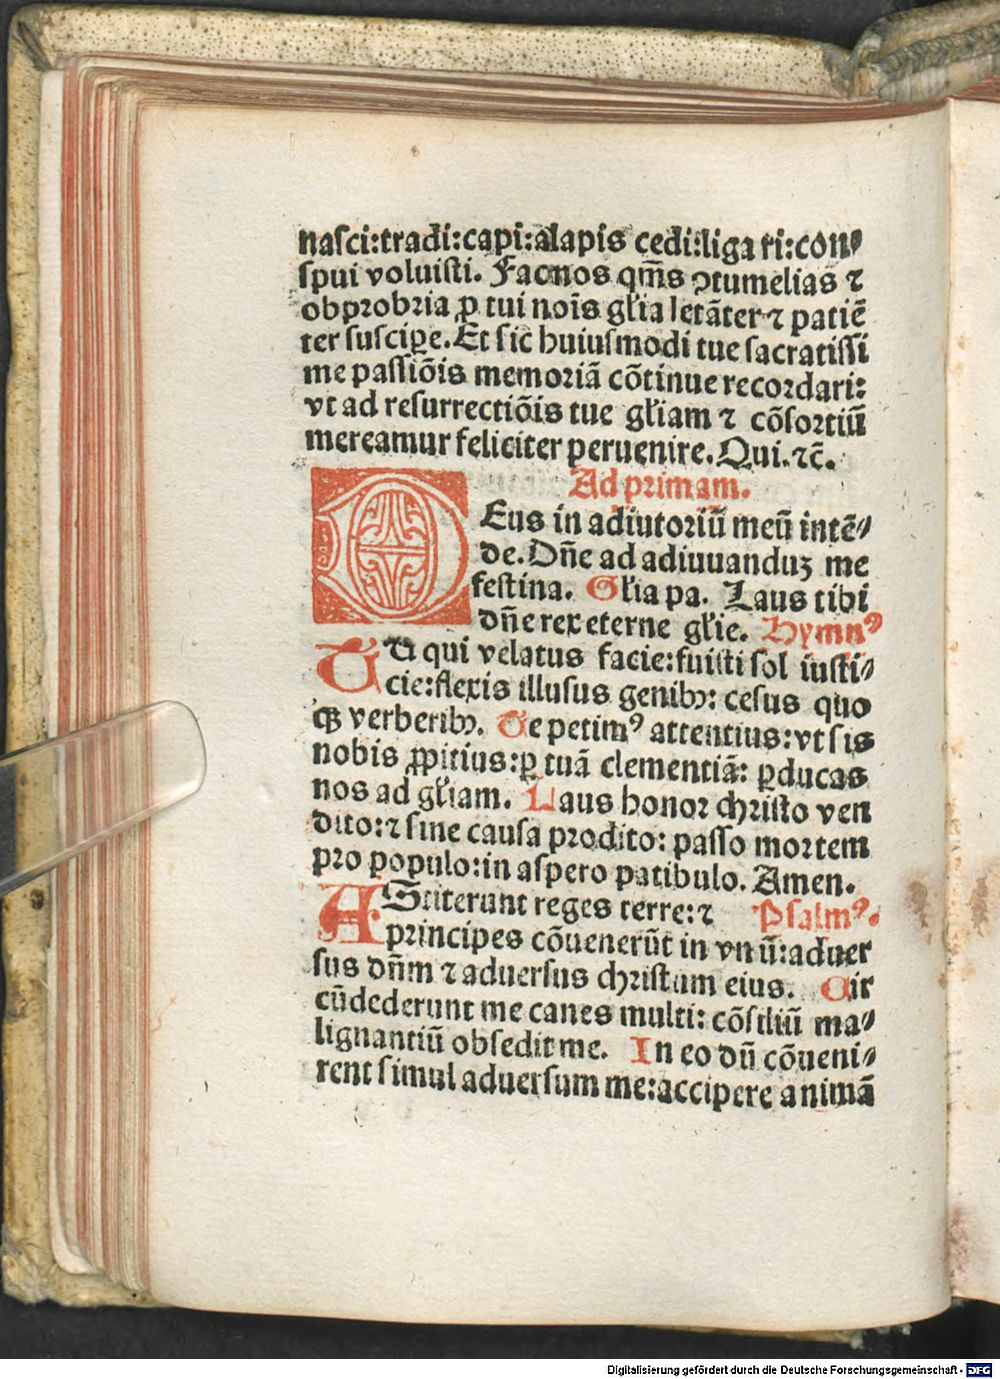 naſci:tradi:capi:alapis cedi:liga ri:con⸗
ſpui voluiſti. Fac nos qm̄s ꝯtumelias ⁊
obprobria ꝓ tui noīs gl̓ia letāter ⁊ patiē
ter ſuſcipe. Et ſic huiuſmodi tue ſacratiſſi
me paſſiōis memoriā cōtinue recordari:
vt ad reſurrectiōis tue gl̓iam ⁊ cōſortiū
mereamur feliciter peruenire. Qui. ⁊c̄.
Ad primam.
DEus in adiutoriū meū intē⸗
de. Dn̄e ad adiuuanduꝫ me
feſtina. Gl̓ia pa. Laus tibi
dn̄e rex eterne gl̓ie. Hymnꝰ
TU qui velatus facie:fuiſti ſol iuſti⸗
cie:flexis illuſus genibꝰ: ceſus quo
qꝫ verberibꝰ. Te petimꝰ attentius:vt ſis
nobis ꝓpitius:ꝑ tuā clementiā: ꝑducas
nos ad gl̓iam. Laus honor chriſto ven
dito:⁊ ſine cauſa prodito: paſſo mortem
pro populo:in aſpero patibulo. Amen.
AStiterunt reges terre:⁊ Pſalmꝰ.
principes cōuenerūt in vnū:aduer
ſus dn̄m ⁊ aduerſus chriſtum eius. Cir
cūdederunt me canes multi: cōſiliū ma⸗
lignantiū obſedit me. In eo dū cōueni⸗
rent ſimul aduerſum me:accipere animā
Digitalisierung gefördert durch die Deutsche Forschungsgemeinschaft - DFG